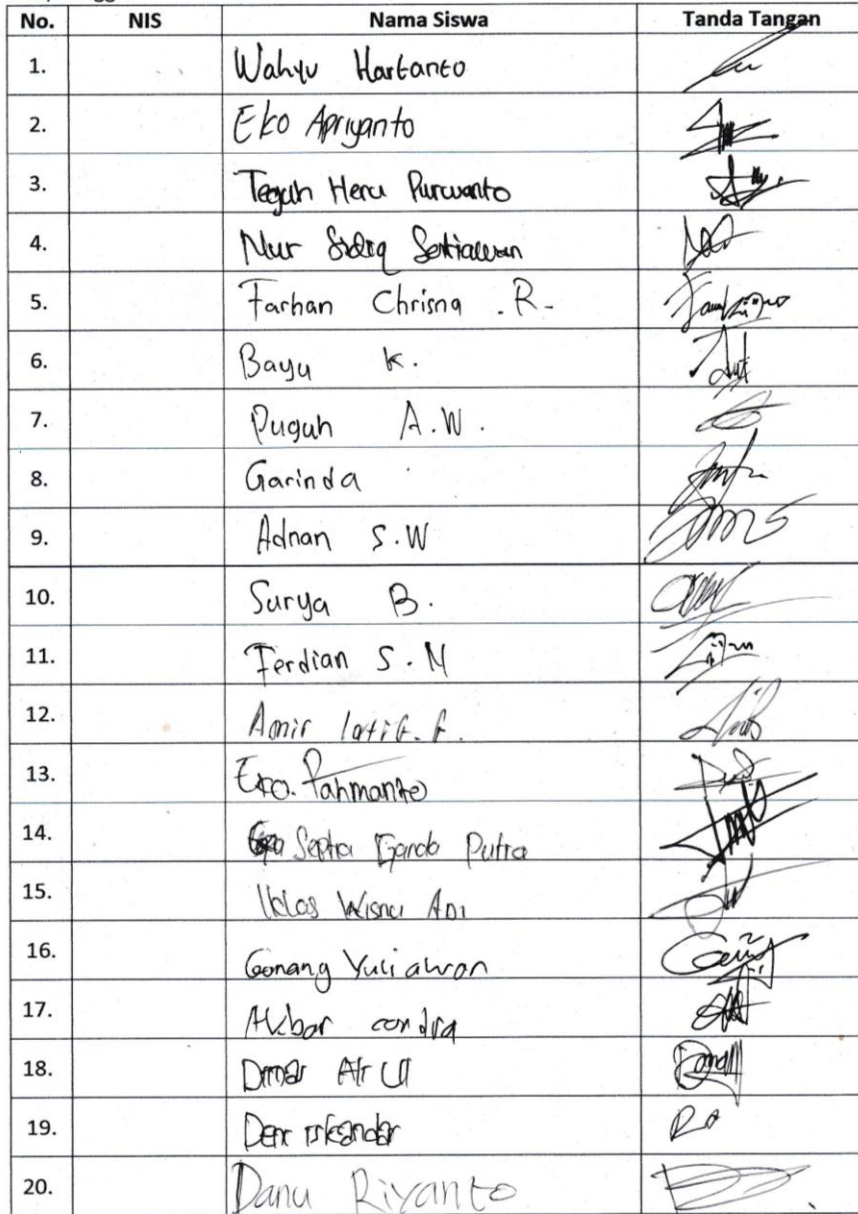 No. NIS Nama Siswa Tanda Tangan
1. Wahyu Hartanto
2. Eko Apriyanto
3. Teguh Heru Purwanto
4. Nur Sidiq Setiawan
5. Farhan Chrisna . R.
6. Bayu K.
7. Puguh A.W.
8. Garinda
9. Adnan S.W
10. Surya B.
11. Ferdian S.M
12. Amir latif. f.
13. Eko. Rahmanto
14. Septia Garda Putra
15. Iklas Wisnu ADI
16. Gonang Yuliawan
17. Akbar candra
18. Dimas
19. Deni iskandar
20. Danu Riyanto